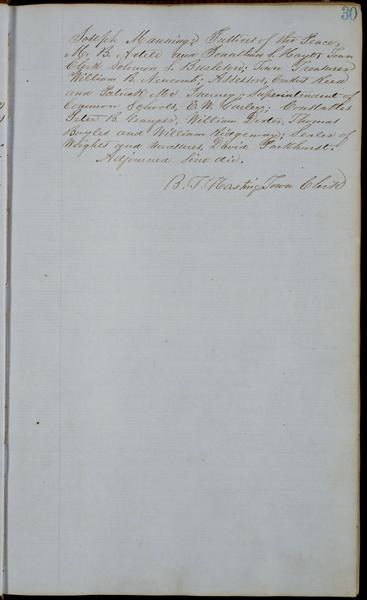 30
Joseph Manning; Justices of the Peace,
M. B. and Jonathan S. Town
Clerk Solomon S. Town Treasurer
William B. Newcomb; Assessors, Reed
and Patrick Mc Superintendent of
Common Schools, E. W. Constables
Peter B. William Thomas
Boyles and William Ridgeway; Sealer of
Weights and measures, David Parkhurst.
Adjourned Sine die.
B. T. Hastings Town Clerk